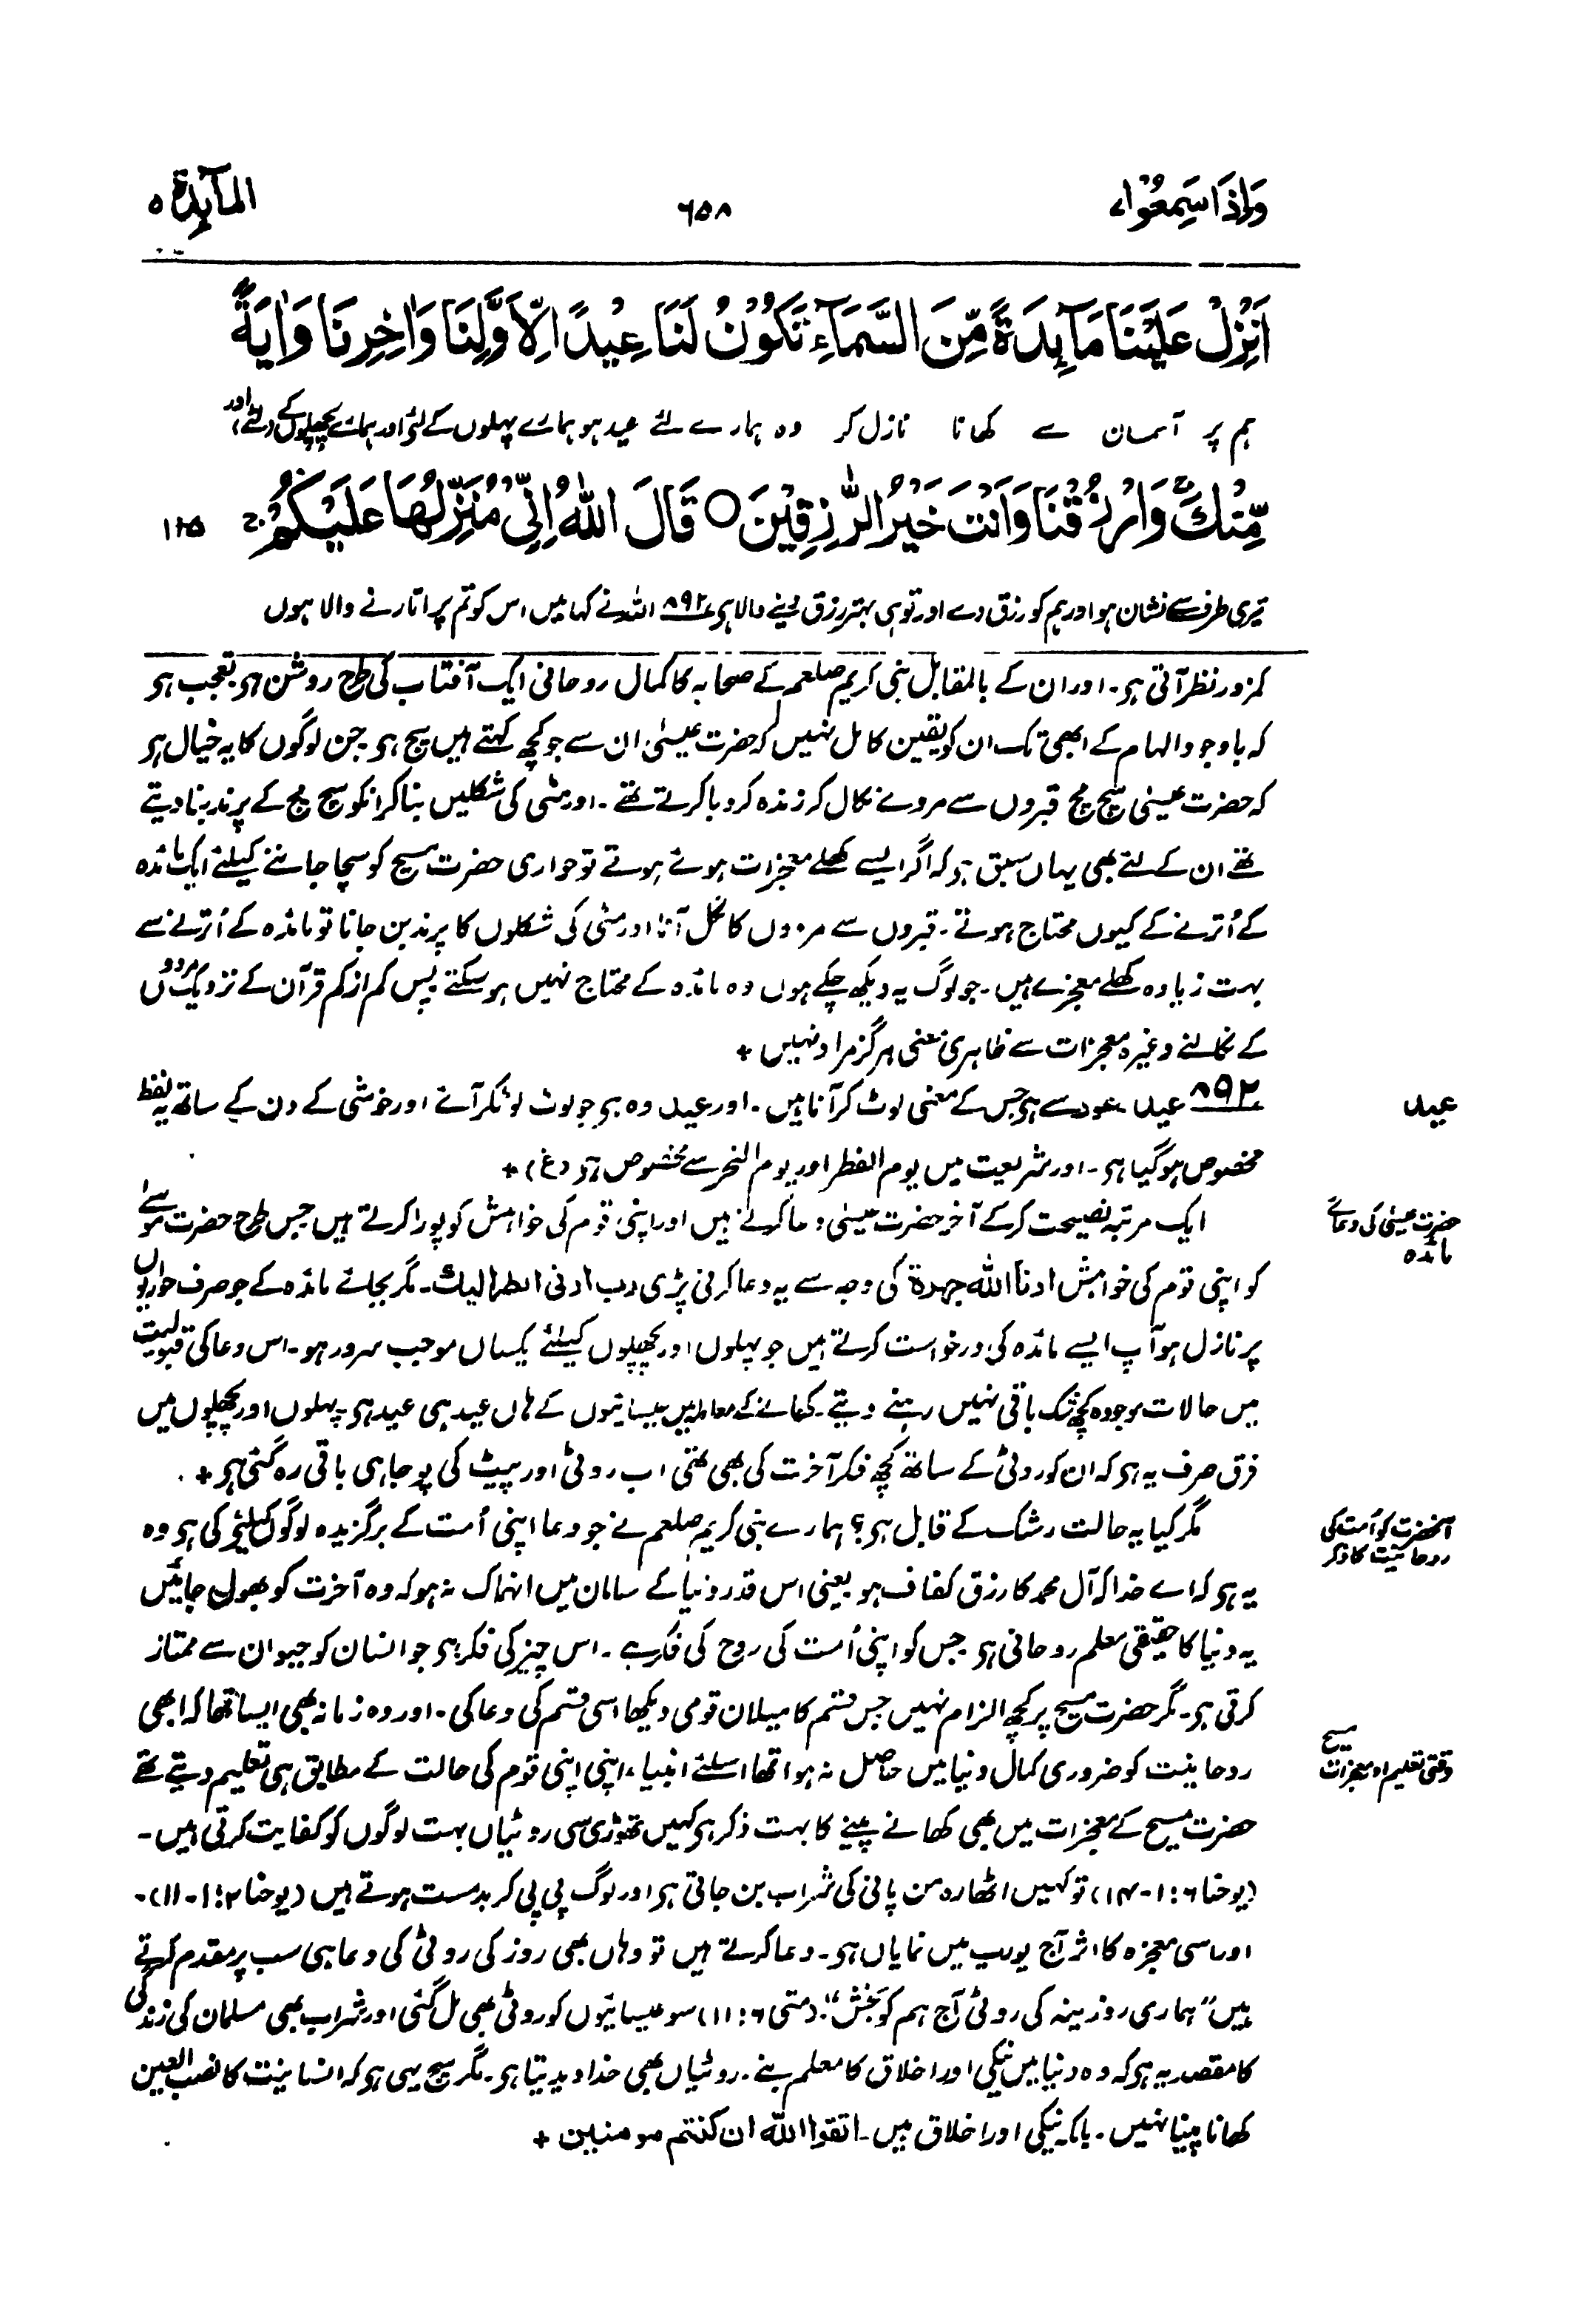 وَاِذَا سَمِعُوْا ۷
۶۵۸
المآئدة ۵
اَنْزِلْ عَلَيْنَا مَآئِدَةً مِّنَ السَّمَآءِ تَكُوْنُ لَنَا عِيْدًا لِّاَوَّلِنَا وَاٰخِرِنَا وَاٰيَةً
ہم پر آسمان سے کھانا نازل کر وہ ہمارے لئے عید ہو ہمارے پہلوں کے لئے اور ہمارے پچھلوں کے (لئے) اور
مِّنْكَ ۚ وَارْزُقْنَا وَاَنْتَ خَيْرُ الرّٰزِقِيْنَ ○ قَالَ اللّٰهُ اِنِّيْ مُنَزِّلُهَا عَلَيْكُمْ ۚ
۱۱۵
تیری طرف سے نشان ہو اور ہم کو رزق دے اور تو ہی بہتر رزق دینے والا ہی ۸۹۲ اللہ نے کہا میں اس کو تم پر اتارنے والا ہوں
کمزور نظر آتی ہی۔ اور ان کے بالمقابل نبی کریم صلعم کے صحابہ کا کمال روحانی ایک آفتاب کی طرح روشن ہی تعجب ہی
کہ باوجود الہام کے ابھی تک ان کو یقین کامل نہیں کہ حضرت عیسیٰ ان سے جو کچھ کہتے ہیں سچ ہی۔ جن لوگوں کا یہ خیال ہی
کہ حضرت عیسیٰ سچ مچ قبروں سے مردے نکال کر زندہ کر دیا کرتے تھے۔ اور مٹی کی شکلیں بنا کر انکو سچ مچ کے پرند بنا دیتے
تھے ان کے لئے بھی یہاں سبق ہی کہ اگر ایسے کھلے معجزات ہوئے ہوتے تو حواری حضرت مسیح کو سچا جاننے کیلئے ایک مائدہ
کے اُترنے کے کیوں محتاج ہوتے۔ قبروں سے مردوں کا نکل آنا اور مٹی کی شکلوں کا پرند بن جانا تو مائدہ کے اُترنے سے
بہت زیادہ کھلے معجزے ہیں۔ جو لوگ یہ دیکھ چکے ہوں وہ مائدہ کے محتاج نہیں ہو سکتے پس کم از کم قرآن کے نزدیک مردوں
کے نکالنے وغیرہ معجزات سے ظاہری معنی ہرگز مراد نہیں +
۸۹۲ عید۔ عود سے ہی جس کے معنی لوٹ کر آنا ہیں۔ اور عید وہ ہی جو لوٹ لوٹکر آئے اور خوشی کے دن کے ساتھ یہ لفظ
عید
مخصوص ہو گیا ہی۔ اور شریعت میں یوم الفطر اور یوم النحر سے مخصوص ہی (غ) +
ایک مرتبہ نصیحت کر کے آخر حضرت عیسیٰ دعا کرتے ہیں اور اپنی قوم کی خواہش کو پورا کرتے ہیں جس طرح حضرت موسےٰ
حضرت عیسیٰ کی دعائے
مائدہ
کو اپنی قوم کی خواہش ارنا اللہ جہرۃ کی وجہ سے یہ دعا کرنی پڑی رب ارنی انظر الیک۔ مگر بجائے مائدہ کے جو صرف حواریوں
پر نازل ہو آپ ایسے مائدہ کی درخواست کرتے ہیں جو پہلوں اور پچھلوں کیلئے یکساں موجب سرور ہو۔ اس دعا کی قبولیت
میں حالات موجودہ کچھ شک باقی نہیں رہنے دیتے۔ کھانے کے معاملہ میں عیسائیوں کے ہاں عید ہی عید ہی۔ پہلوں اور پچھلوں میں
فرق صرف یہ ہی کہ ان کو روٹی کے ساتھ کچھ فکر آخرت کی بھی تھی اب روٹی اور پیٹ کی پوجا ہی باقی رہ گئی ہی +
مگر کیا یہ حالت رشک کے قابل ہی؟ ہمارے نبی کریم صلعم نے جو دعا اپنی اُمت کے برگزیدہ لوگوں کیلئے کی ہی وہ
آنحضرت کو اُمت کی
روحانیت کا فکر
یہ ہی کہ اے خدا کہ آل محمد کا رزق کفاف ہو یعنی اس قدر دنیا کے سامان میں انہماک نہ ہو کہ وہ آخرت کو بھول جائیں
یہ دنیا کا حقیقی معلم روحانی ہی جس کو اپنی اُمت کی روح کی فکر ہے۔ اس چیز کی فکر ہی جو انسان کو حیوان سے ممتاز
کرتی ہی۔ مگر حضرت مسیح پر کچھ الزام نہیں جس قسم کا میلان قومی دیکھا اسی قسم کی دعا کی۔ اور وہ زمانہ بھی ایسا تھا کہ ابھی
روحانیت کو ضروری کمال دنیا میں حاصل نہ ہوا تھا اسلئے انبیاء اپنی اپنی قوم کی حالت کے مطابق ہی تعلیم دیتے تھے
مسیح
وقتی تعلیم اور معجزات
حضرت مسیح کے معجزات میں بھی کھانے پینے کا بہت ذکر ہی کہیں تھوڑی سی روٹیاں بہت لوگوں کو کفایت کرتی ہیں۔
(یوحنا ۶:۱-۱۴) تو کہیں اٹھارہ من پانی کی شراب بن جاتی ہی اور لوگ پی پی کر بدمست ہوتے ہیں (یوحنا ۲:۱-۱۱)۔
اور اسی معجزہ کا اثر آج یورپ میں نمایاں ہی۔ دعا کرتے ہیں تو وہاں بھی روز کی روٹی کی دعا ہی سب پر مقدم کرتے
ہیں "ہماری روزینہ کی روٹی آج ہم کو بخش"۔ (متی ۶:۱۱) سو عیسائیوں کو روٹی بھی مل گئی اور شراب بھی مسلمان کی زندگی
کا مقصد یہ ہی کہ وہ دنیا میں نیکی اور اخلاق کا معلم بنے۔ روٹیاں بھی خدا دیدیتا ہی۔ مگر سچ یہی ہی کہ انسانیت کا نصب العین
کھانا پینا نہیں۔ بلکہ نیکی اور اخلاق ہیں۔ اتقوا اللہ ان کنتم مومنین +